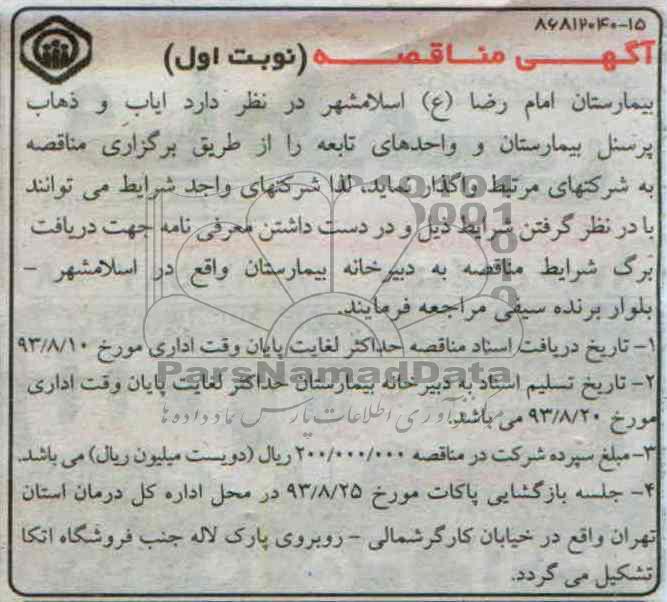 ۸۶۸۱۲۰۴۰-۱۵
آگهی مناقصه (نوبت اول)
بیمارستان امام رضا (ع) اسلامشهر در نظر دارد ایاب و ذهاب
پرسنل بیمارستان و واحدهای تابعه را از طریق برگزاری مناقصه
به شرکتهای مرتبط واگذار نماید، لذا شرکتهای واجد شرایط می توانند
با در نظر گرفتن شرایط ذیل و در دست داشتن معرفی نامه جهت دریافت
برگ شرایط مناقصه به دبیرخانه بیمارستان واقع در اسلامشهر -
بلوار برنده سیفی مراجعه فرمایند.
۱- تاریخ دریافت اسناد مناقصه حداکثر لغایت پایان وقت اداری مورخ ۹۳/۸/۱۰
ParsNamadData
۲- تاریخ تسلیم اسناد به دبیرخانه بیمارستان حداکثر لغایت پایان وقت اداری
مورخ ۹۳/۸/۲۰ می باشد.
مرکز فرآوری اطلاعات پارس نماد داده ها
۳- مبلغ سپرده شرکت در مناقصه ۲۰۰/۰۰۰/۰۰۰ ریال (دویست میلیون ریال) می باشد.
۴- جلسه بازگشایی پاکات مورخ ۹۳/۸/۲۵ در محل اداره کل درمان استان
تهران واقع در خیابان کارگرشمالی - روبروی پارک لاله جنب فروشگاه اتکا
تشکیل می گردد.